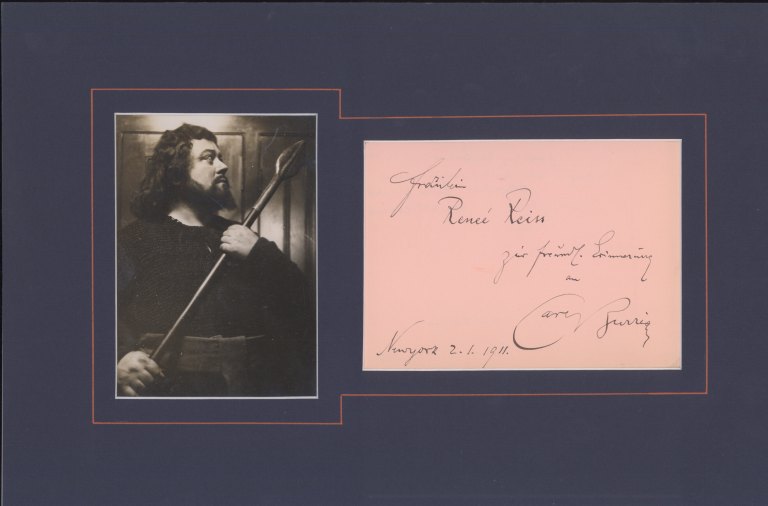 Fräulein
Reneé Reiss
zur freundl. Erinnerung
an
Carl Burrian
Newyork 2.1.1911.